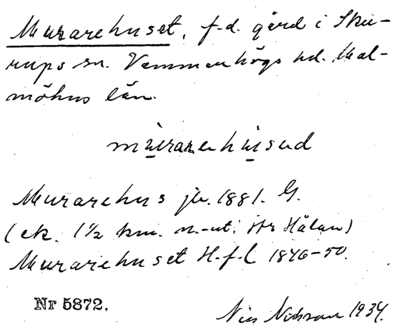 Murarehuset, f.d. gård i Sku-
rups sn. Vemmenhögs hd. Mal-
möhus län.
mu̲rarehu̲sed
Murarehus jb. 1881. G.
(ck. 1½ km. n-ut.
Murarehuset H.f.l 1846-50.
Nr 5872.
Nils 1934.